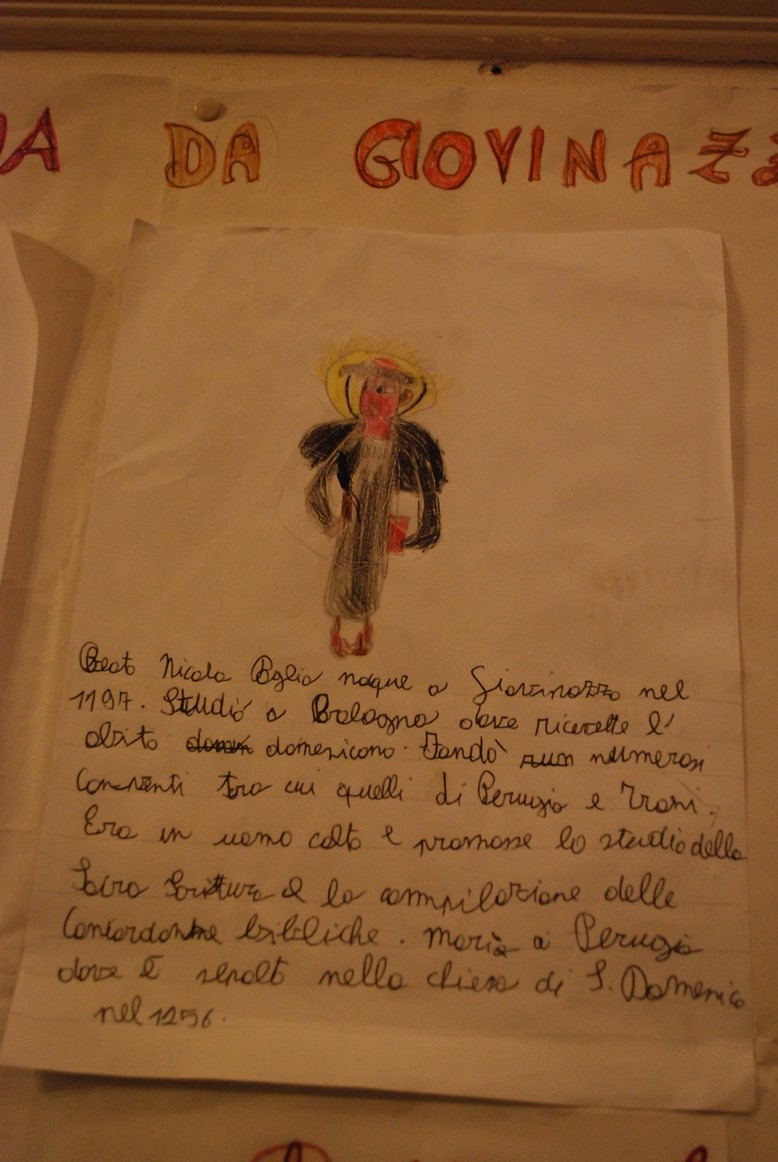 A DA GIOVINAZZ
Beato Nicola Paglia naque a Giovinazzo nel
1197. Studiò a Bologna dove ricevette l'
abito domenicano. Fondò numerosi
Conventi tra cui quelli di Perugia e Trani.
Era un uomo colto e promosse lo studio della
Sacra Scrittura e la compilazione delle
Concordanze bibliche. Morì a Perugia
dove è sepolto nella chiesa di S. Domenico
nel 1256.